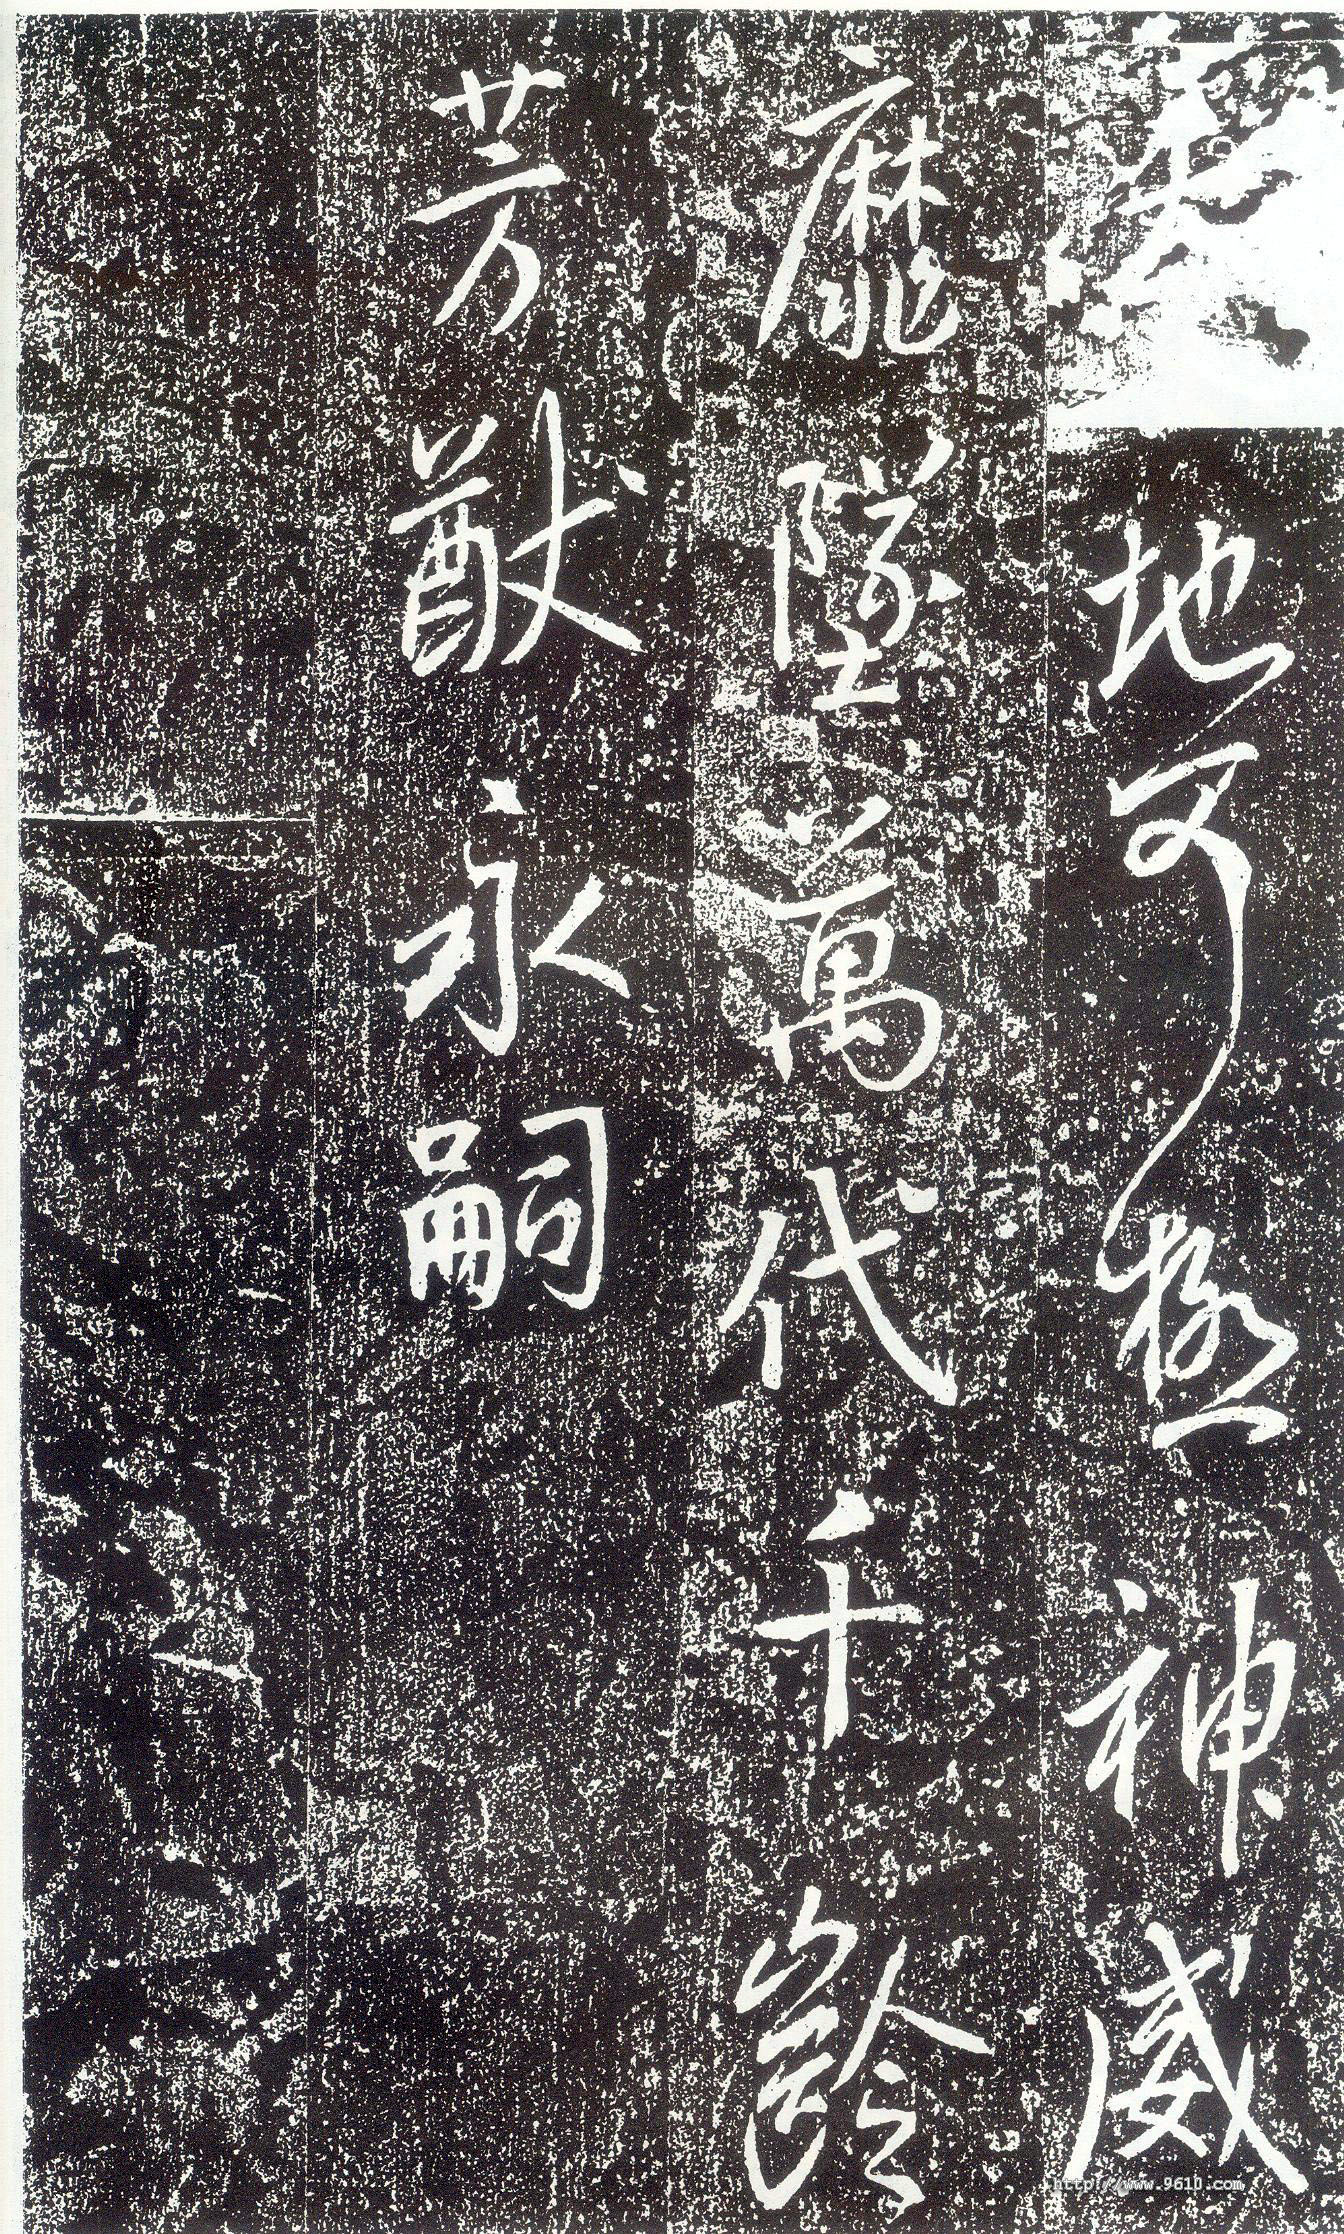 地可極神威
靡墜萬代千齡
芳猷永嗣
http://www.9610.com